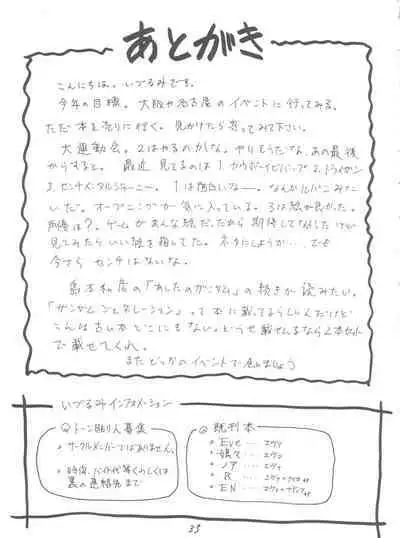 あとがき
こんにちは。いづるみです。
今年の目標。大阪や名古屋のイベントに行ってみる。
ただ本を売りに行く。見かけたら寄ってみて下さい。
大運動会。2はやるのかな。やりそうだな、あの最後
からすると。最近見てるのは1カウボーイビバップ2、トライガン
3、センチメンタルジャーニー。1は面白いなー。なんかルパンみた
いだ。オープニングが気に入っている。3は絵が良かった。
は?。ゲームがあんな絵だったから期待してなかったけど
見てみたらいい絵を描いてた。ネタにしようか…、でも
今さらセンチはないな。
島本和彦の「あしたのガンダム」の続きが読みたい。
「ガンダムジェネレーション」って本に載ってるらしいんだけど
こんな古い本どこにもない。どうせ載せるなら
で載せてくれ。
またどっかのイベントで会いましょう
いづるみインフォメーション
トーン貼り人募集
・サークルメンバーではありません。
・時給、バイト代等くわしくは
裏の連絡先まで
既刊本
・Eve‥‥エヴァ
・嬉々‥‥エヴァ
・ノア‥‥エヴァ
・R‥‥エヴァ+
・EN‥‥エヴァ+
35